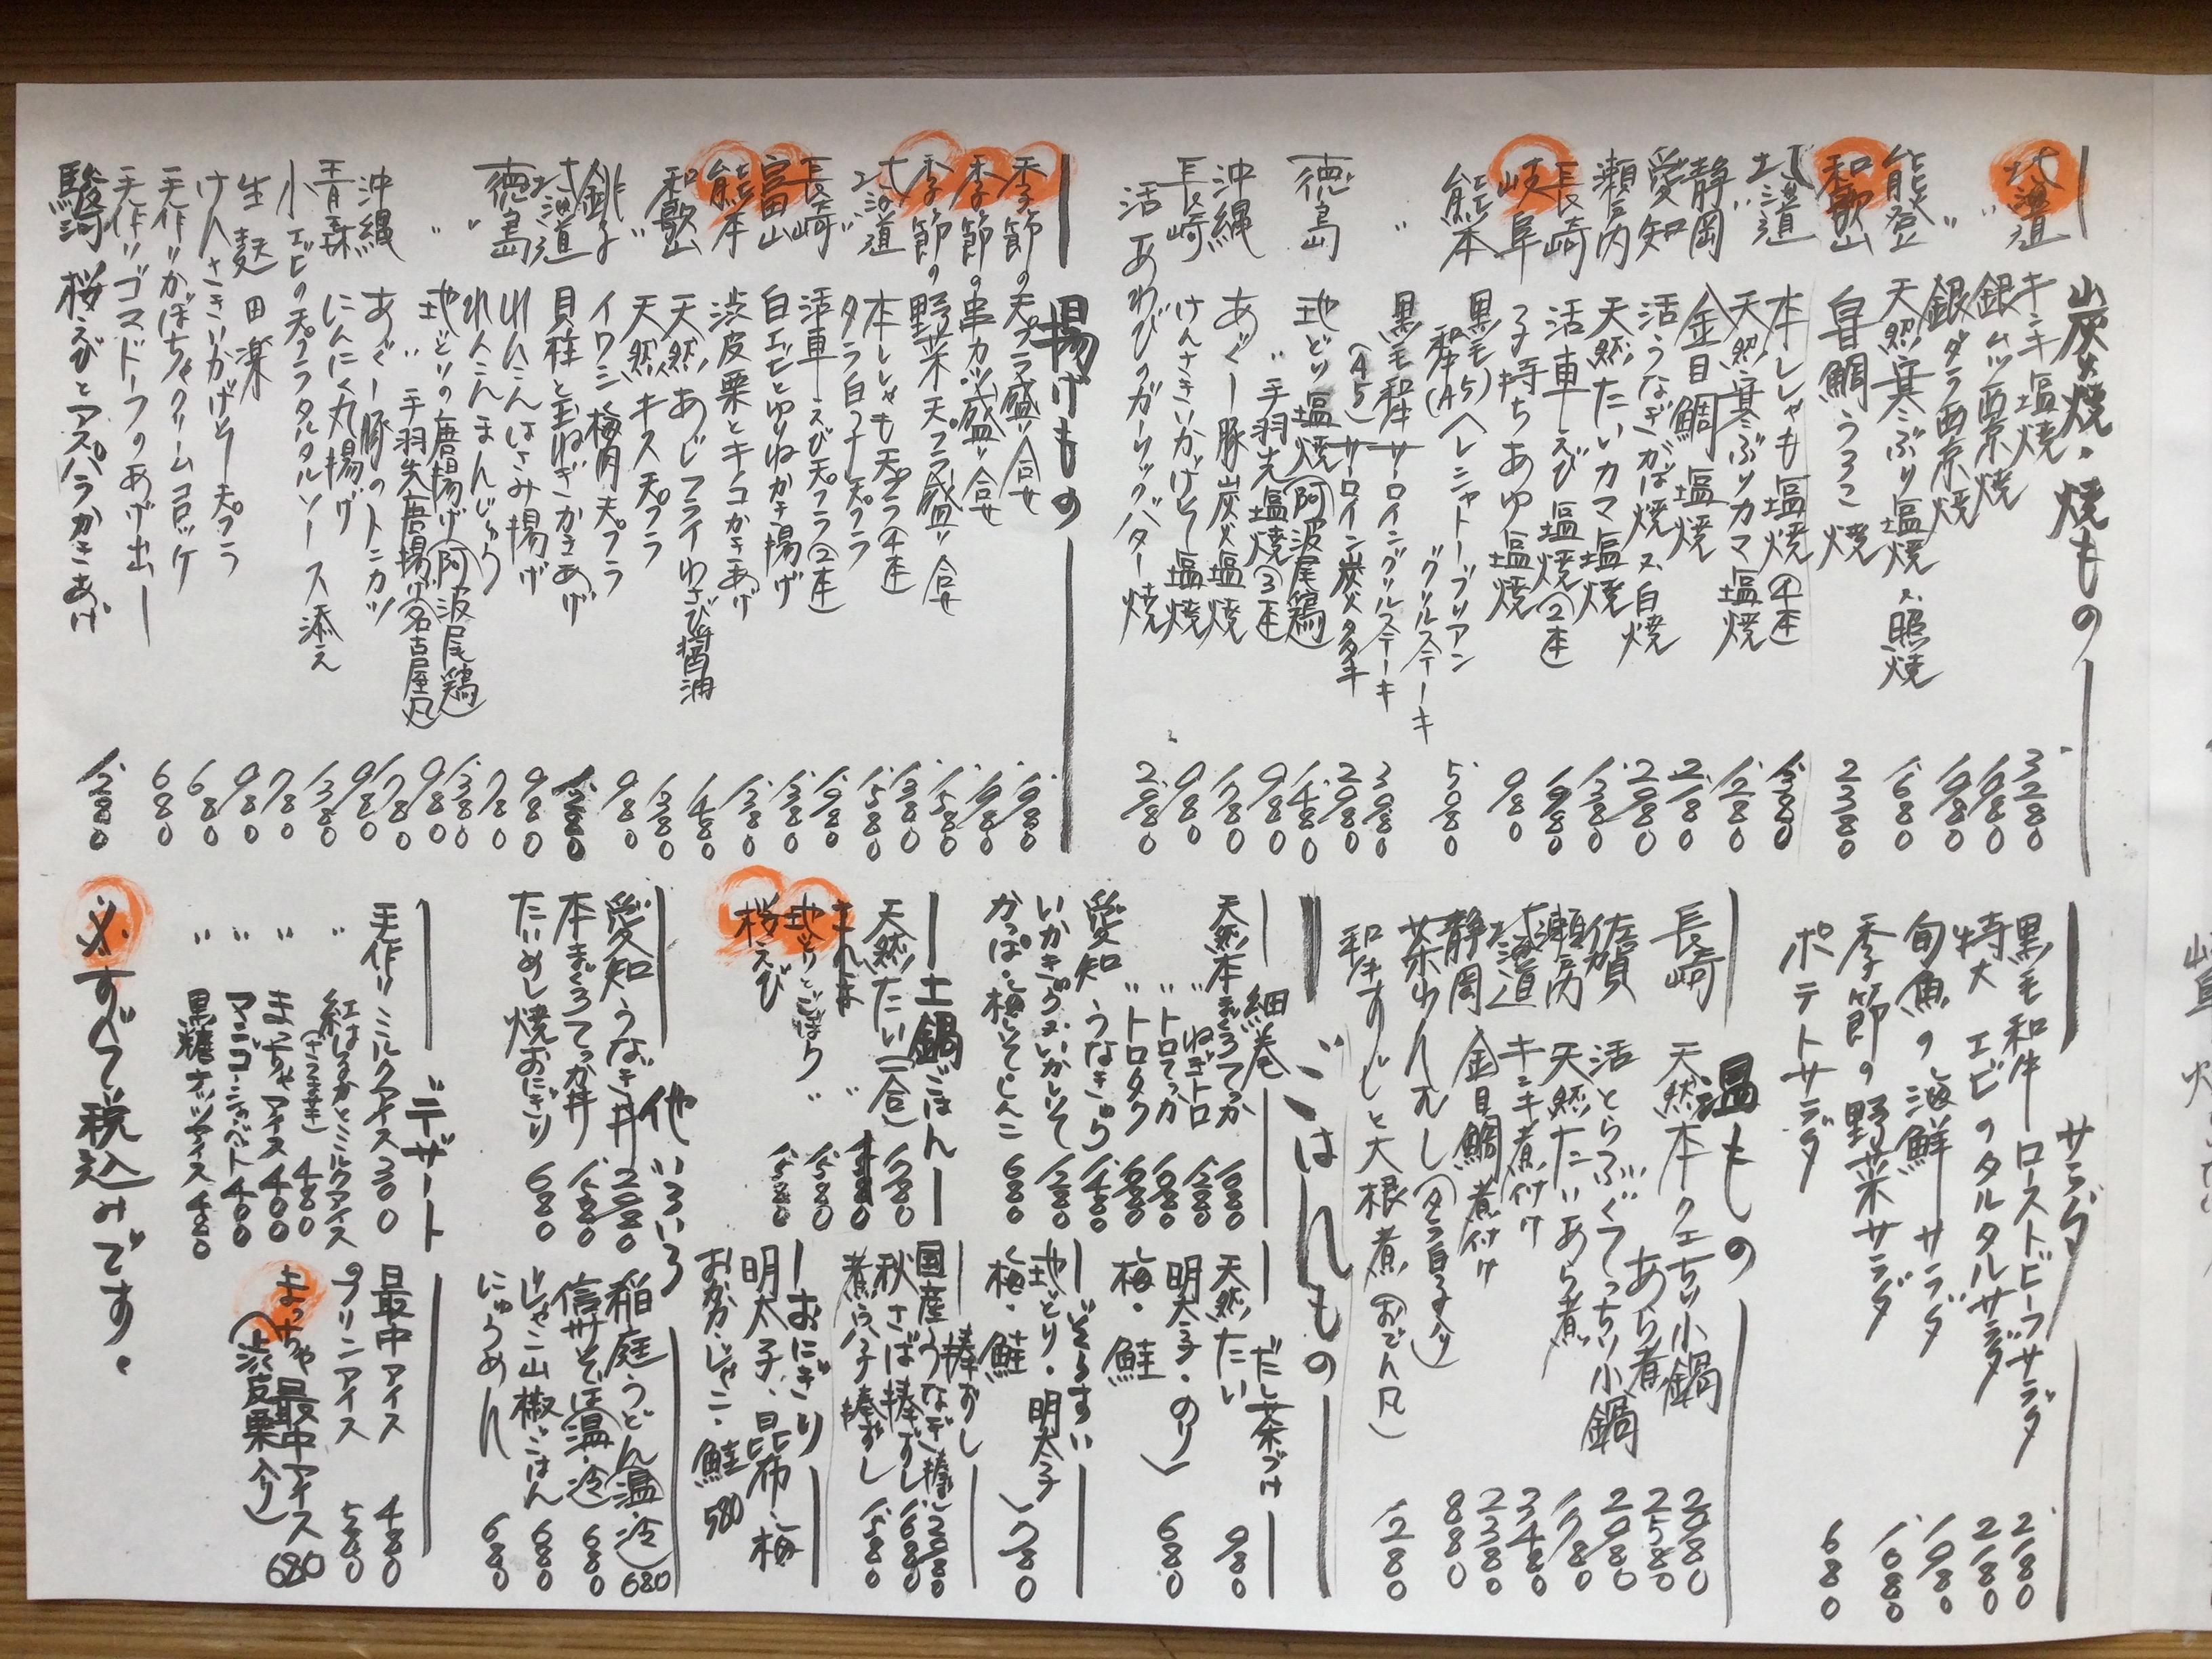 炭火焼・焼もの
北海道 キンキ塩焼 3,280
〃 銀ムツ西京焼 1,980
〃 銀ダラ西京焼 1,980
能登 天然寒ぶり塩焼又照焼 1,680
和歌山 甘鯛うろこ焼 2,380
北海道 本ししゃも塩焼(4本) 1,380
〃 天然寒ぶりカマ塩焼 1,280
静岡 金目鯛塩焼 2,180
愛知 活うなぎがば焼又白焼 2,980
瀬戸内 天然たいカマ塩焼 1,380
長崎 活車えび塩焼(2本) 1,980
岐阜 子持ちあゆ塩焼 980
熊本 黒毛和牛(A5)ヘレシャトーブリアングリルステーキ 5,080
〃 黒毛和牛(A5)サーロイングリルステーキ 3,080
サーロイン炭火タタキ 2,980
徳島 地どり塩焼(阿波尾鶏) 1,480
〃 手羽先塩焼(3本) 980
沖縄 あぐー豚炭火塩焼 1,780
長崎 けんさきいかげそ塩焼 980
活あわびのガーリックバター焼 2,980
揚げもの
季節の天プラ盛り合せ 1,980
季節の串カツ盛り合せ 1,980
季節の野菜天プラ盛り合せ 1,580
北海道 本ししゃも天プラ(4本) 1,380
〃 タラ白子天プラ 1,580
長崎 活車えび天プラ(2本) 1,980
富山 白エビとゆりねかき揚げ 1,380
熊本 渋皮栗とキノコかきあげ 1,380
和歌山 天然あじフライわさび醤油 1,480
〃 天然キス天プラ 1,380
銚子 イワシ梅肉天プラ 980
北海道 貝柱と玉ねぎかきあげ 1,280
れんこんはさみ揚げ 980
れんこんまんじゅう 780
徳島 地どりの唐揚げ(阿波尾鶏) 1,380
〃 〃 手羽先唐揚げ(名古屋風) 980
沖縄 あぐー豚のトンカツ 1,780
青森 にんにく丸揚げ 980
小エビの天プラタルタルソース添え 1,380
生麩田楽 780
けんさきいかげそ天プラ 980
手作りかぼちゃクリームコロッケ 680
手作りゴマドーフのあげ出し 680
駿河 桜えびとアスパラかきあげ 1,280
サラダ
黒毛和牛ローストビーフサラダ 2,180
特大エビのタルタルサラダ 2,180
旬魚の海鮮サラダ 1,980
季節の野菜サラダ 1,080
ポテトサラダ 680
温もの
長崎 天然本クエちり小鍋 2,980
あら煮 2,580
佐賀 活とらふぐてっちり小鍋 2,980
瀬戸内 天然たいあら煮 1,780
北海道 キンキ煮付け 3,480
静岡 金目鯛煮付け 2,380
茶わんむし(タラ白子入り) 880
和牛すじと大根煮(おでん風) 1,280
ごはんもの
細巻
天然本まぐろてっか 1,680
〃 ねぎトロ 1,280
〃 トロてっか 1,680
〃 トロタク 1,680
愛知 うなきゅう 1,480
いかきゅう又いかしそ 1,280
かっぱ・梅しそ・しんこ 680
だし茶づけ
天然たい 980
明太子・のり
梅・鮭 680
ぞうすい
地どり・明太子
梅・鮭 780
土鍋ごはん
天然たい(一合) 1,780
地どりとごぼう 〃 1,580
桜えび 〃 1,580
棒ずし
国産うなぎ棒ずし 2,980
秋さば棒ずし 1,680
煮穴子棒ずし 1,580
おにぎり
明太子、昆布、梅
おかか・じゃこ・鮭 580
他いろいろ
愛知うなぎ丼 2,980
本まぐろてっか丼 1,580
たいめし焼おにぎり 680
稲庭うどん(温・冷) 680
信州そば(温・冷) 680
じゃこ山椒ごはん 680
にゅうめん 680
デザート
手作りミルクアイス 300
〃 紅はるかとミルクアイス(さつまいも) 480
〃 まっちゃアイス 400
〃 マンゴーシャーベット 400
〃 黒糖ナッツアイス 480
最中アイス 480
プリンアイス 580
まっちゃ最中アイス(渋皮栗入り) 680
※すべて税込みです。